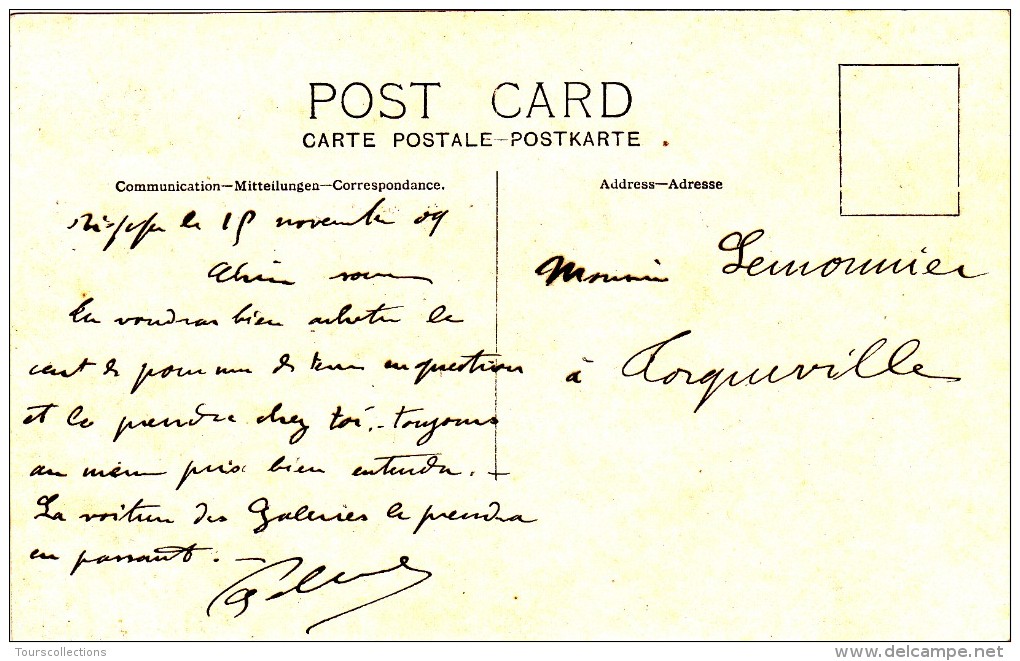 POST CARD
CARTE POSTALE–POSTKARTE
Communication—Mitteilungen—Correspondance.
Address—Adresse
le 15 novembre 09
Tu voudras bien acheter le
cent de pommes de terre en question
et le prendre chez toi, toujours
au même prix bien entendu. –
La voiture des Galeries le prendra
en passant. –
Monsieur Lemonnier
à Torqueville
Tourscollections
delcampe.net